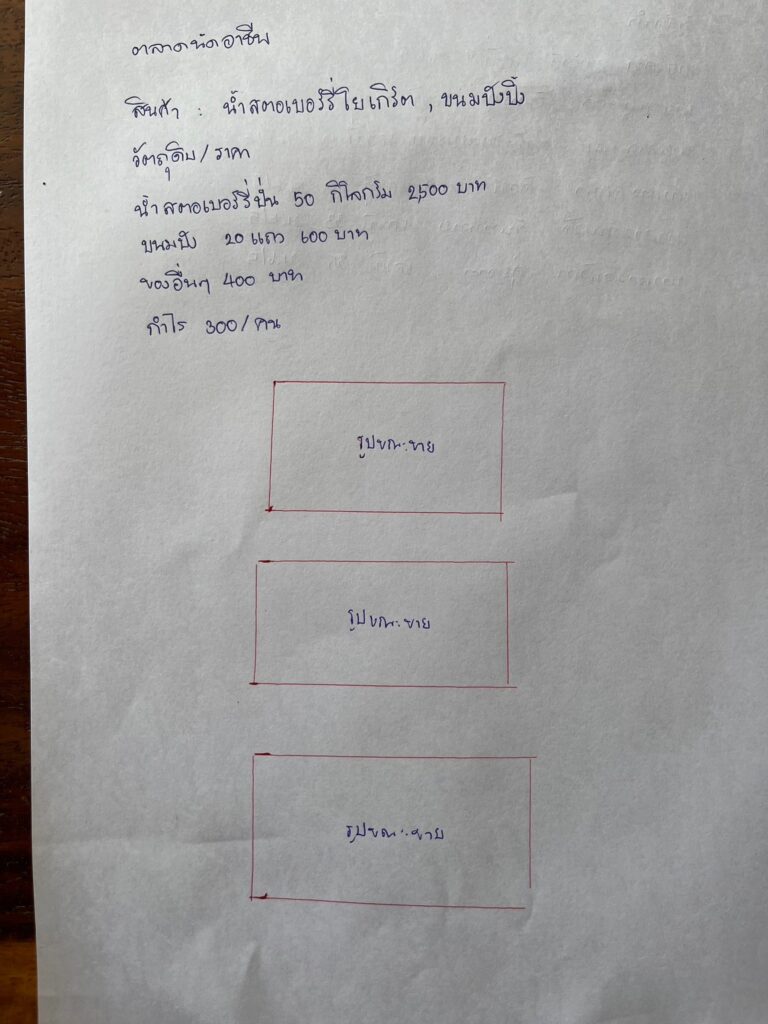 ตลาดนัดอาชีพ
สินค้า : น้ำสตอเบอร์รี่โยเกิร์ต , ขนมปังปิ้ง
วัตถุดิบ/ราคา
น้ำสตอเบอร์รี่ปั่น 50 กิโลกรัม 2,500 บาท
ขนมปัง 20 แถว 600 บาท
ของอื่นๆ 400 บาท
กำไร 300/คน
รูปขณะขาย
รูปขณะขาย
รูปขณะขาย